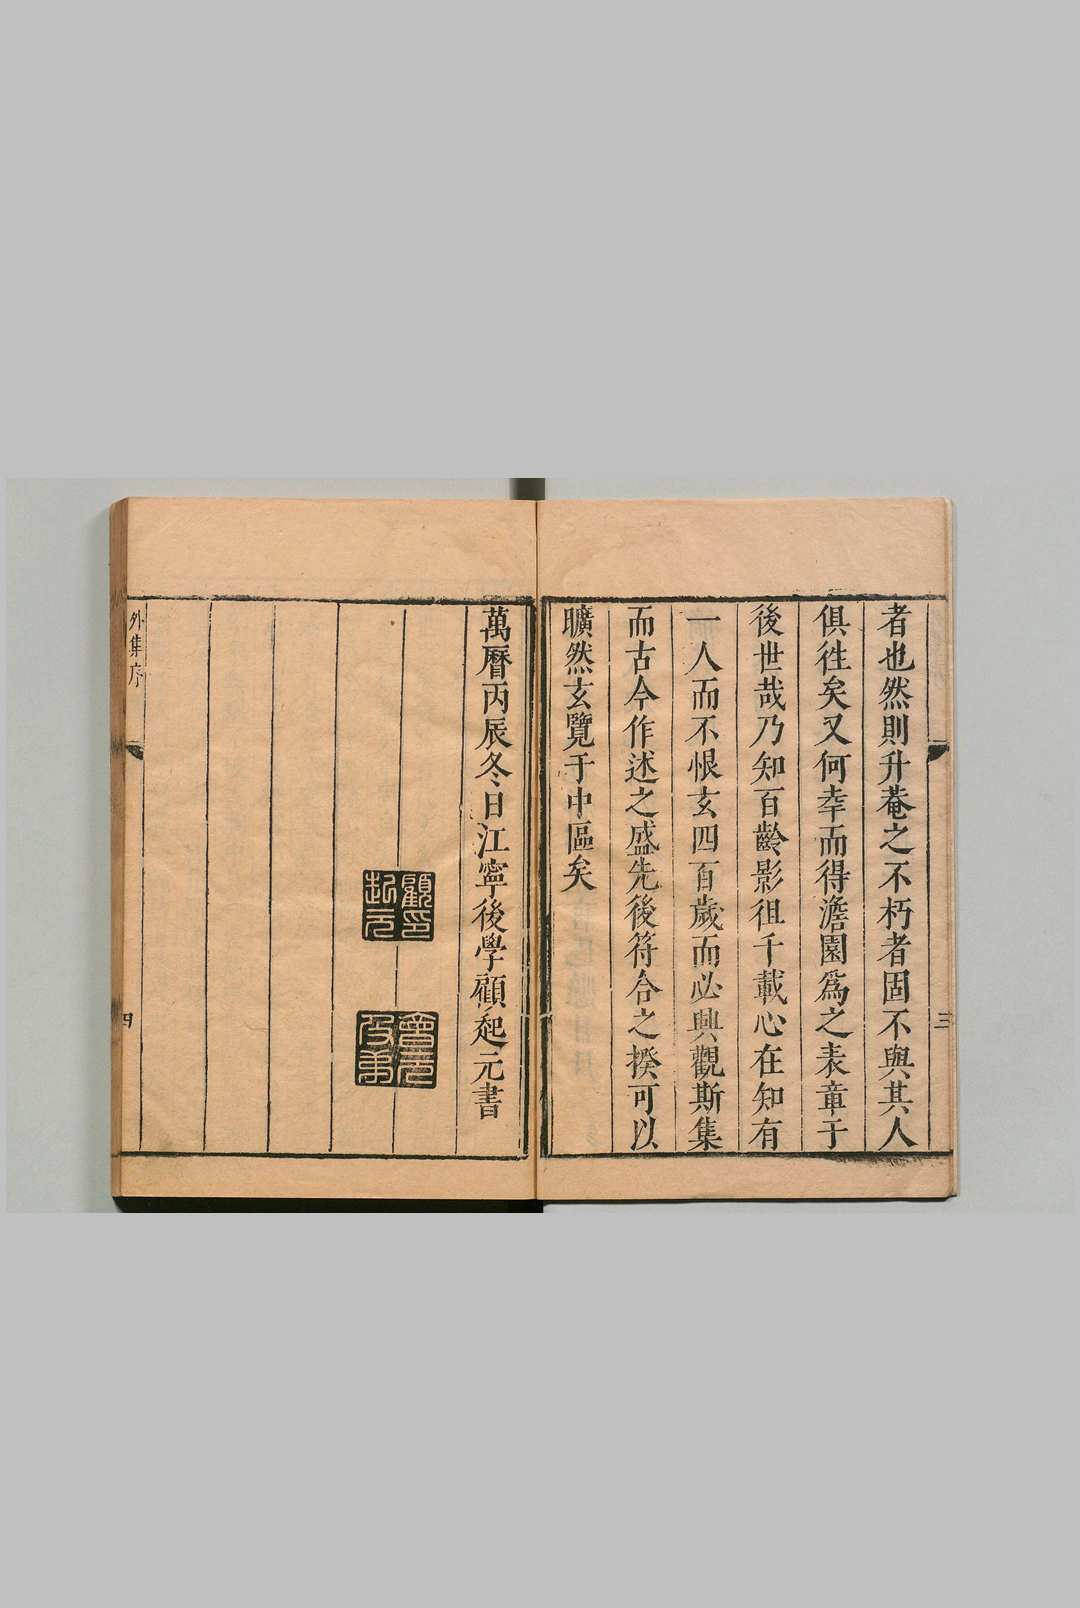 者也然則升菴之不朽者固不與其人
俱徃矣又何幸而得澹園爲之表章于
後世哉乃知百齡影徂千載心在知有
一人而不恨玄四百歲而必興觀斯集
而古今作述之盛先後符合之揆可以
曠然玄覽于中區矣
三
萬曆丙辰冬日江寧後學顧起元書
顧印
起元
會元
及弟
外集序
四